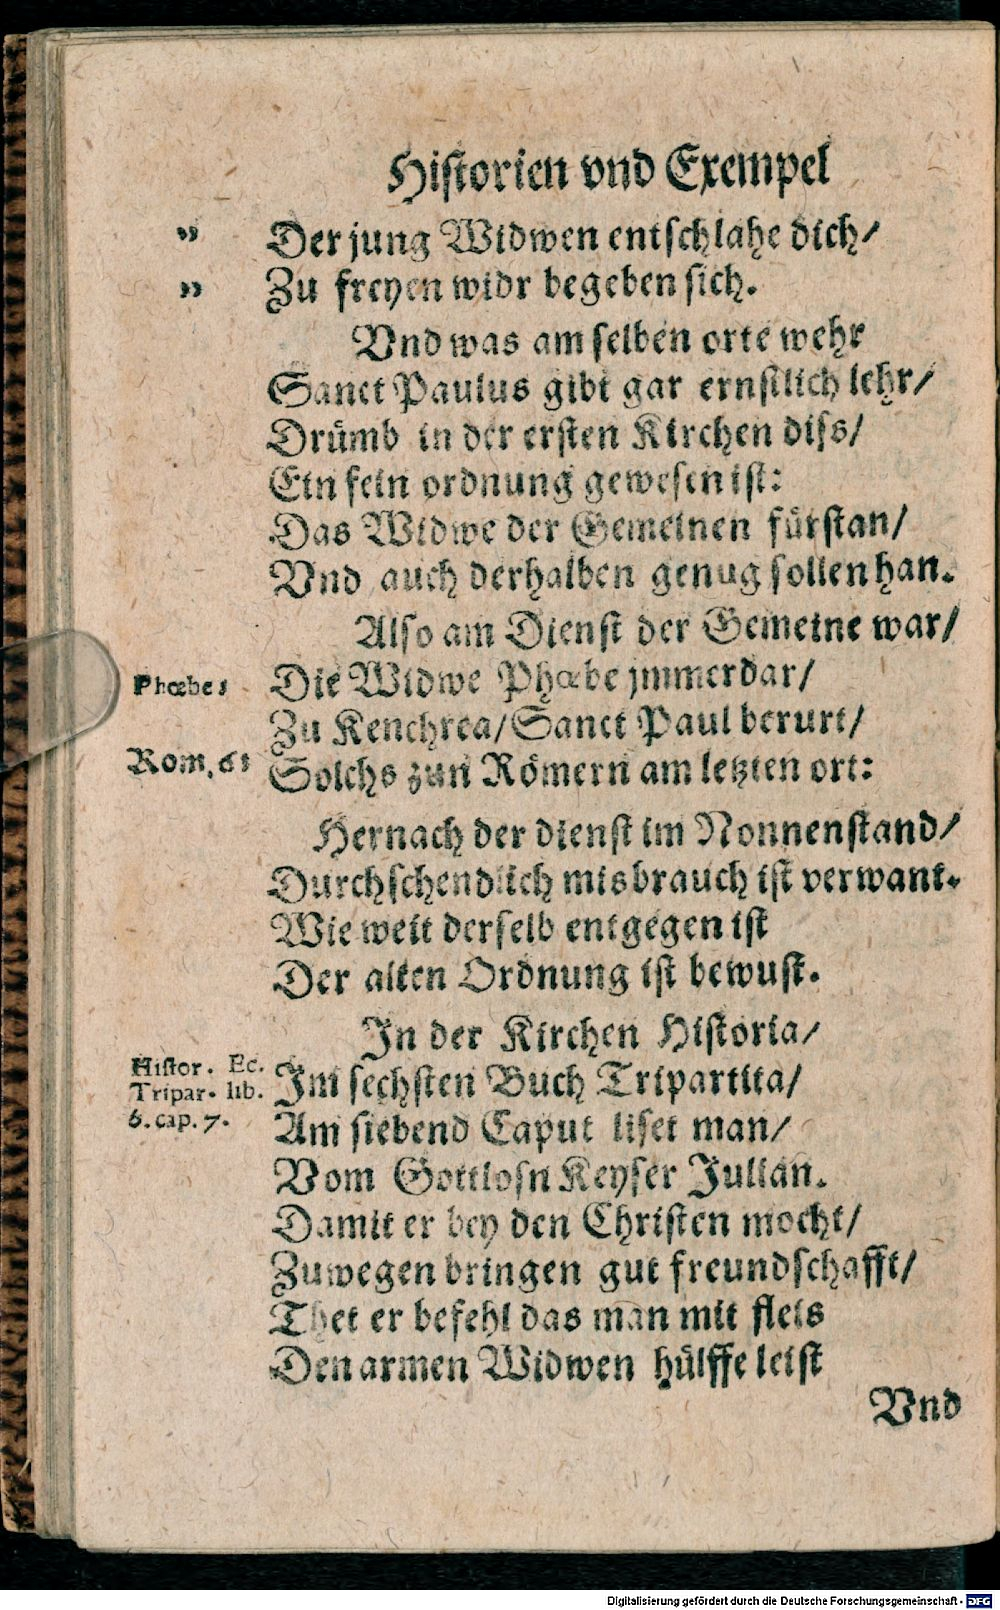 Historien vnd Exempel
„ Der jung Widwen entschlahe dich/
„ Zu freyen widr begeben sich.
Vnd was am selben orte wehr
Sanct Paulus gibt gar ernstlich lehr/
Drümb in der ersten Kirchen diss/
Ein fein ordnung gewesen ist:
Das Widwe der Gemeinen fürstan/
Vnd auch derhalben genug sollen han.
Also am Dienst der Gemeine war/
Phœbe: Die Widwe Phœbe jmmerdar/
Zu Kenchrea/ Sanct Paul berurt/
Rom. 6: Solchs zun Römern am letzten ort:
Hernach der dienst im Nonnenstand/
Durchschendlich misbrauch ist verwant.
Wie weit derselb entgegen ist
Der alten Ordnung ist bewust.
In der Kirchen Historia/
Histor. Ec. Im sechsten Buch Tripartita/
Tripar. lib.
6. cap. 7. Am siebend Caput liset man/
Vom Gottlosn Keyser Julian.
Damit er bey den Christen mocht/
Zuwegen bringen gut freundschafft/
Thet er befehl das man mit fleis
Den armen Widwen hülffe leist
Vnd
Digitalisierung gefördert durch die Deutsche Forschungsgemeinschaft - DFG